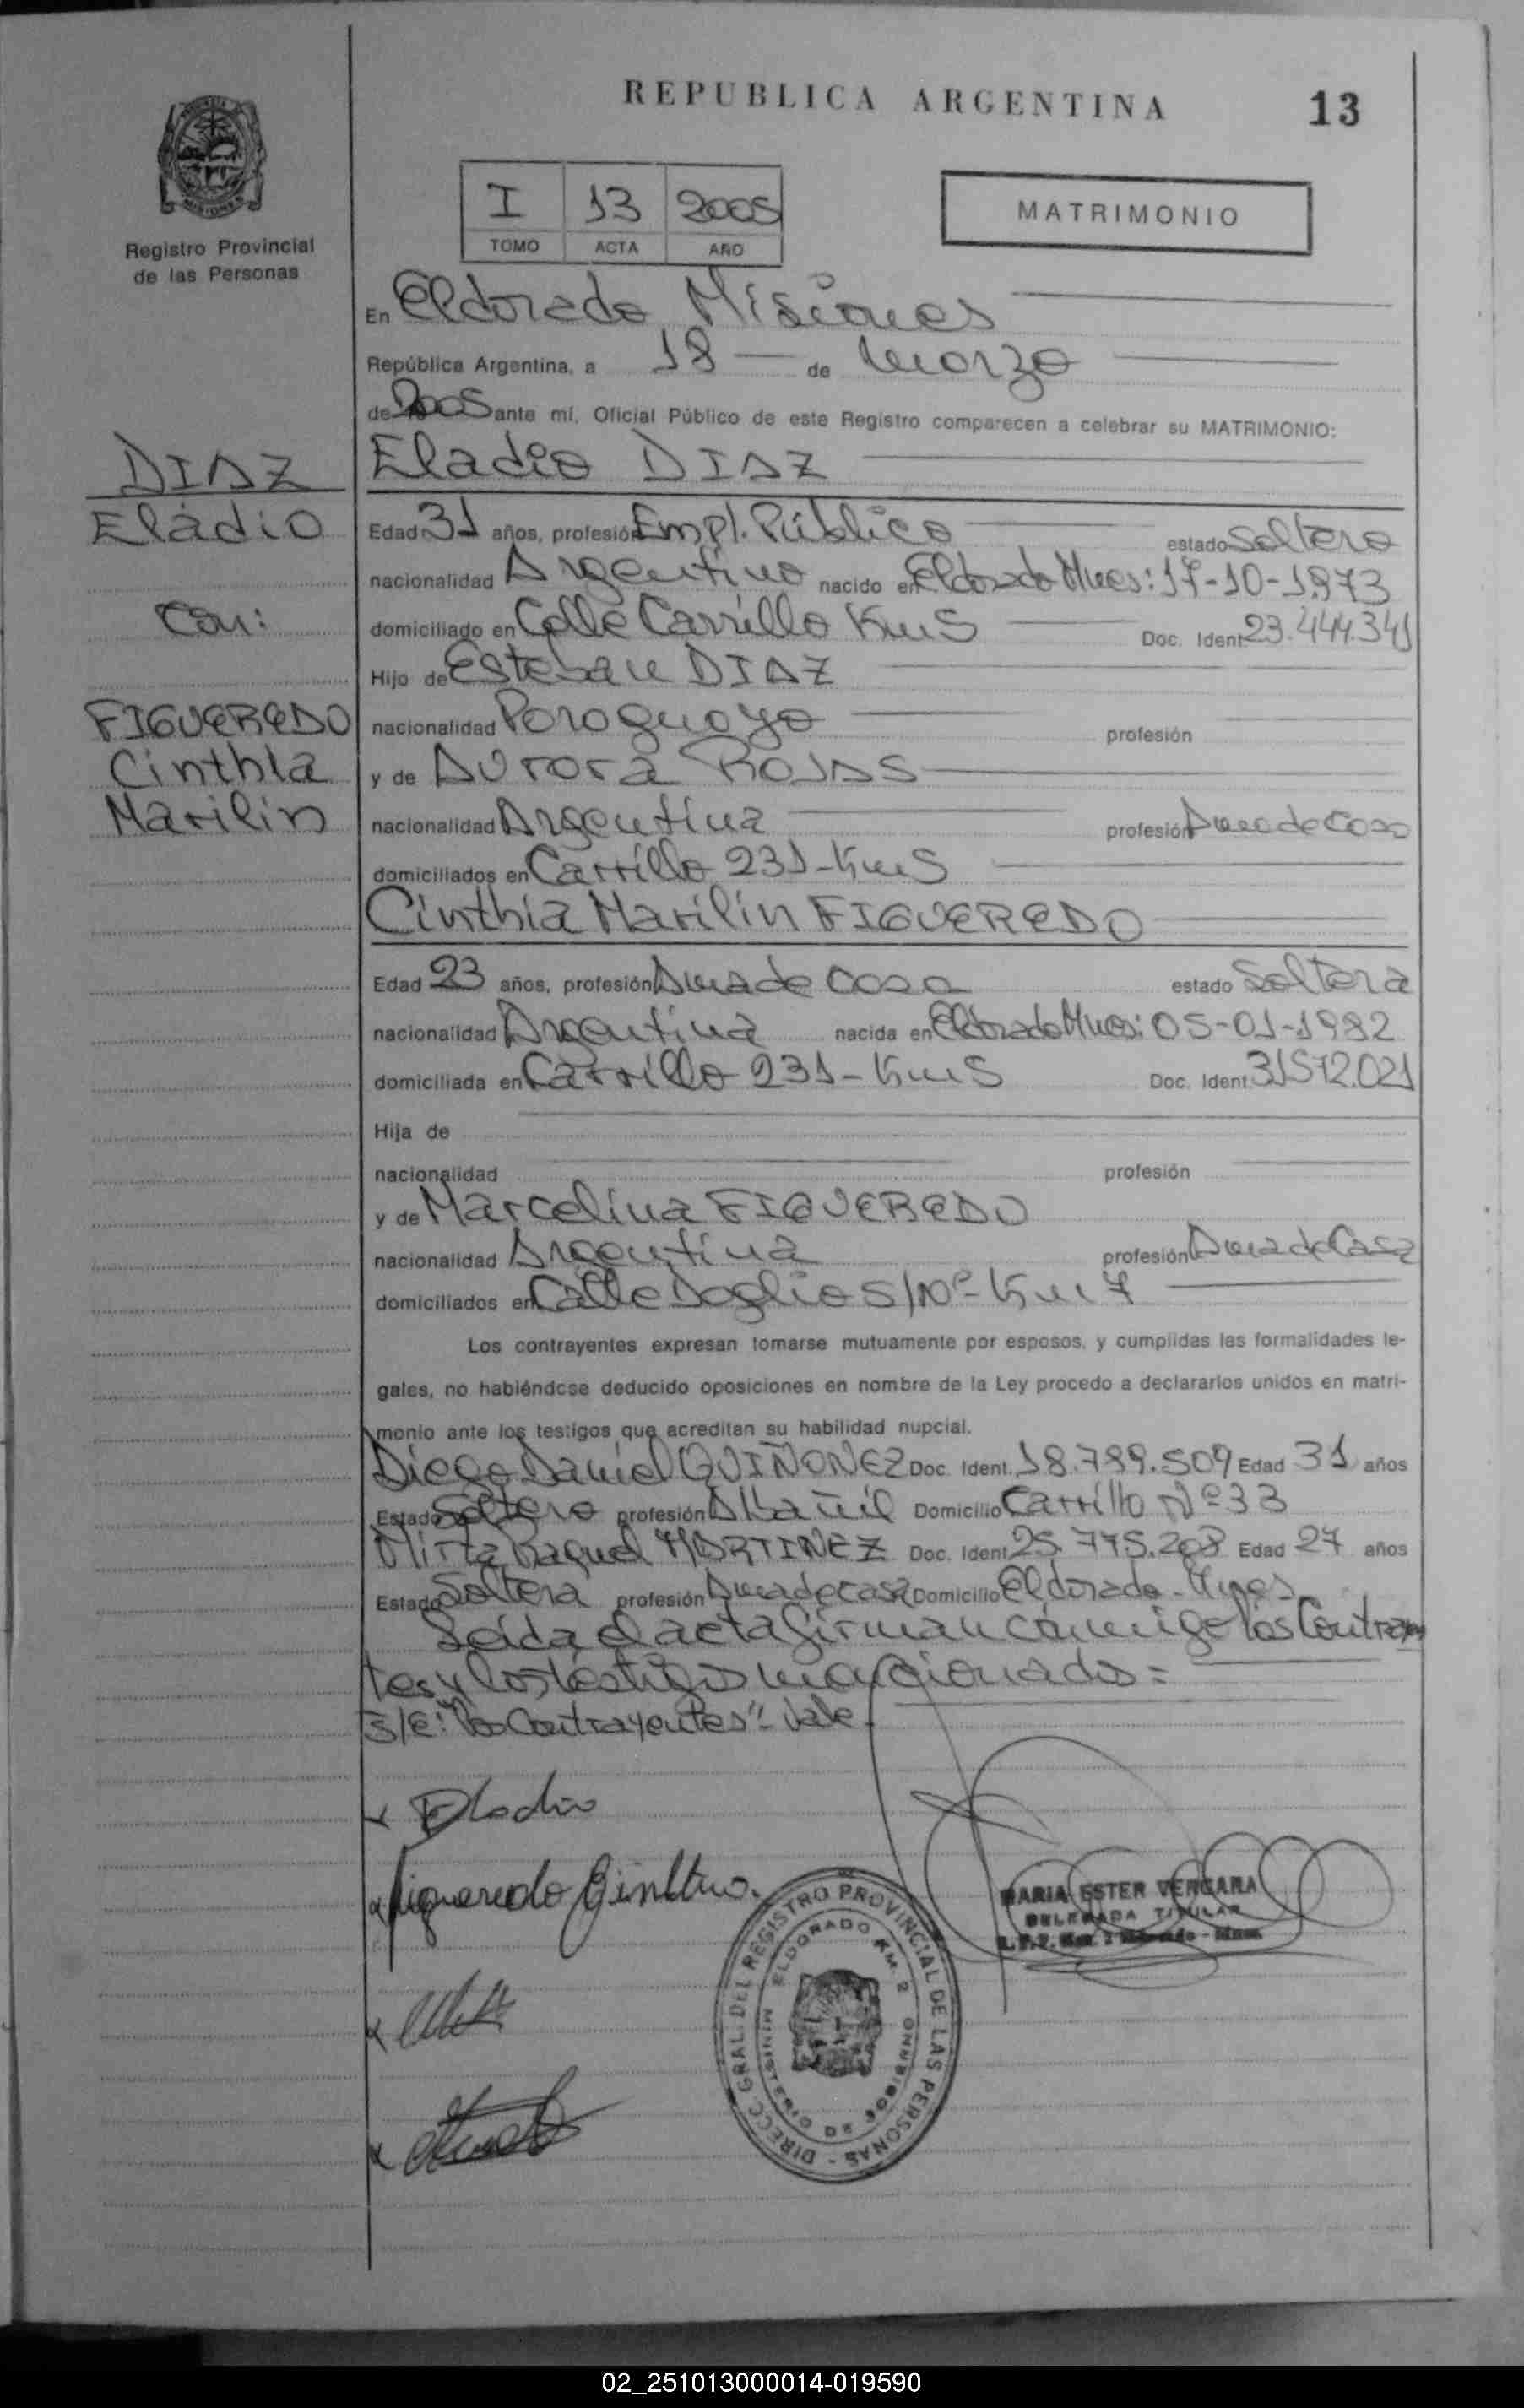 REPUBLICA ARGENTINA
13
I 13 2005
TOMO ACTA AÑO
MATRIMONIO
Registro Provincial
de las Personas
En Eldorado Misiones
República Argentina, a 18 de Marzo
de 2005 ante mí, Oficial Público de este Registro comparecen a celebrar su MATRIMONIO:
DIAZ
Eladio
Con:
FIGUEREDO
Cinthia
Marilin
Eladio DIAZ
Edad 31 años, profesión Empl. Público estado Soltero
nacionalidad Argentino nacido en Eldorado Mnes: 17-10-1973
domiciliado en Calle Carrillo Km 5 Doc. Ident. 23.444.341
Hijo de Esteban DIAZ
nacionalidad Paraguayo profesión
y de Aurora ROJAS
nacionalidad Argentina profesión Ama de Casa
domiciliados en Carrillo 231-Km 5
Cinthia Marilin FIGUEREDO
Edad 23 años, profesión Ama de casa estado Soltera
nacionalidad Argentina nacida en Eldorado Mnes: 05-01-1982
domiciliada en Carrillo 231-Km 5 Doc. Ident. 31.572.021
Hija de
nacionalidad profesión
y de Marcelina FIGUEREDO
nacionalidad Argentina profesión Ama de Casa
domiciliados en Calle Doglio S/Nº-Km 7
Los contrayentes expresan tomarse mutuamente por esposos, y cumplidas las formalidades le-
gales, no habiéndose deducido oposiciones en nombre de la Ley procedo a declararlos unidos en matri-
monio ante los testigos que acreditan su habilidad nupcial.
Diego Daniel QUIÑONEZ Doc. Ident. 18.789.509 Edad 31 años
Estado Soltero profesión Albañil Domicilio Carrillo Nº 33
Mirta Raquel MARTINEZ Doc. Ident. 25.775.208 Edad 27 años
Estado Soltera profesión Ama de casa Domicilio Eldorado-Mnes
Leída el acta firman conmigo los Contrayen
tes y los testigos mencionados=
S/E: "los Contrayentes"- Vale.
Eladio
Figueredo Cinthia.
MARIA ESTER VERGARA
DELEGADA TITULAR
DIRECC. GRAL. DEL REGISTRO PROVINCIAL DE LAS PERSONAS -
MINISTERIO DE GOBIERNO
ELDORADO KM. 2
02_251013000014-019590